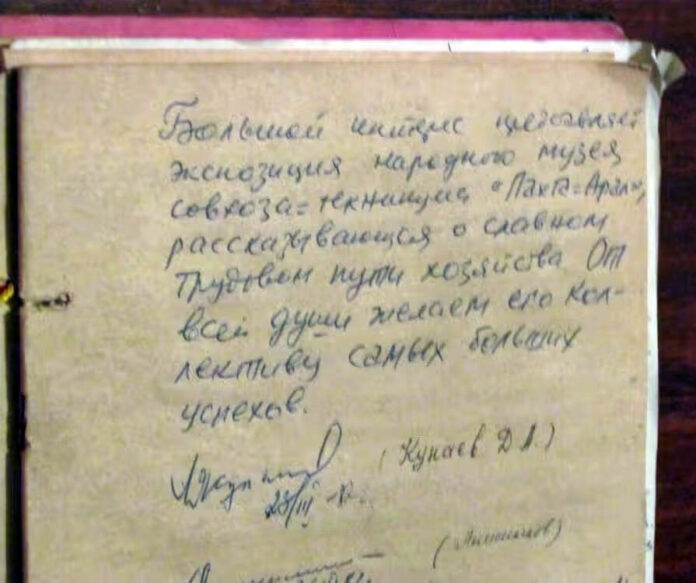 Большой интерес представляет
экспозиция народного музея
совхоза=техникума "Пахта=Арал",
рассказывающая о славном
трудовом пути хозяйства От
всей души желаем его кол-
лективу самых больших
успехов.
(Кунаев Д А)
23/III